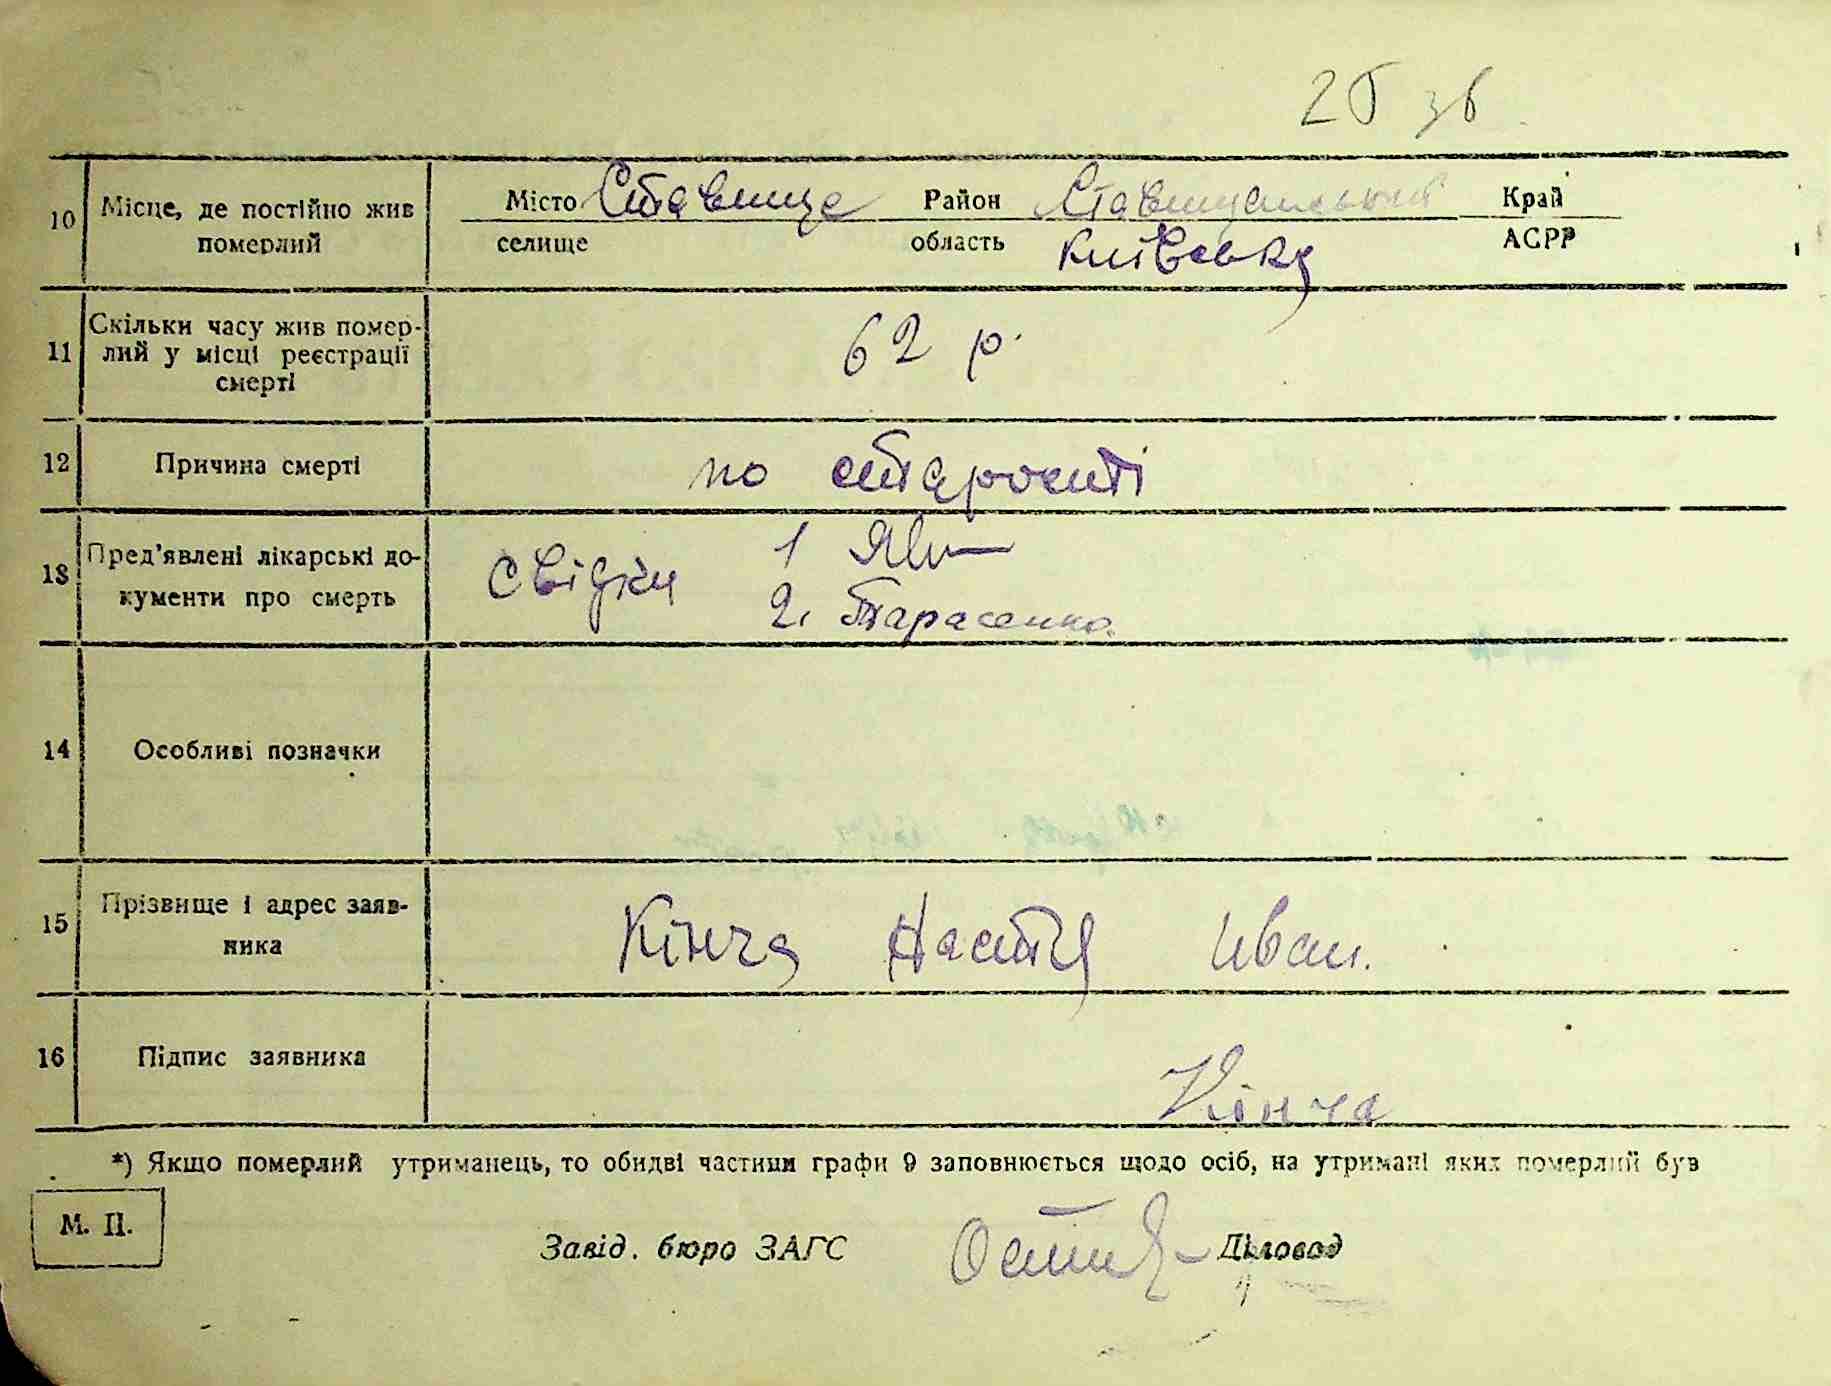 26 зв
10 Місце, де постійно жив померлий Місто Ставище Район Ставищанський Край
селище область Київська АСРР
11 Скільки часу жив помер-
лий у місці реєстрації
смерті
62 р.
12 Причина смерті по старості
13 Пред'явлені лікарські до-
кументи про смерть
Свідки 1
2. Тарасенко.
14 Особливі позначки
15 Прізвище і адрес заяв-
ника
Кінча Настя Иван.
16 Підпис заявника Кінча
*) Якщо померлий утриманець, то обидві частини графи 9 заповнюється щодо осіб, на утримані яких померлий був
М. П.
Завід. бюро ЗАГС Діловод